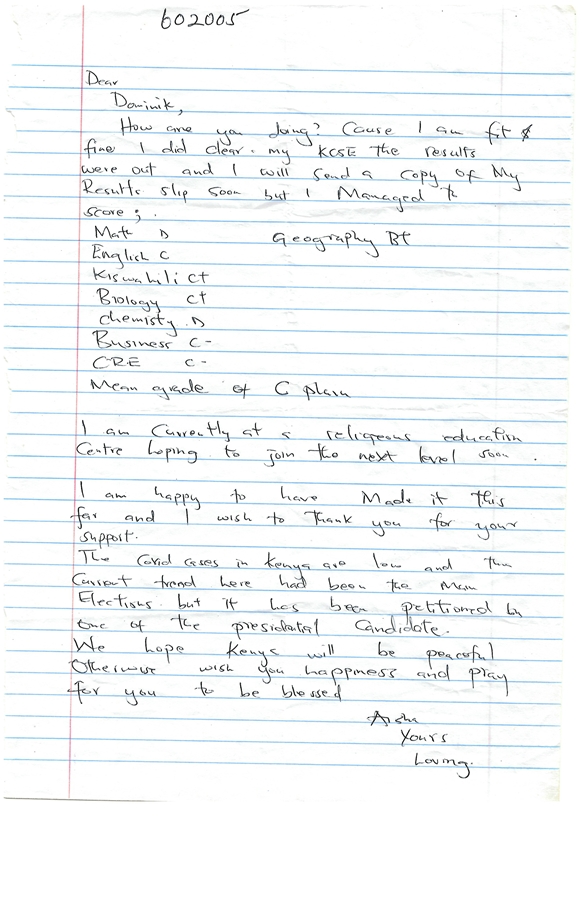 602005
Dear
Dominik,
How are you doing? Cause I am fit &
fine I did clear. my KCSE the results
were out and I will send a copy of My
Results slip soon but I Managed to
score;.
Mate D Geography B+
English C
Kiswahili C+
Biology C+
chemisty. D
Business C-
CRE C-
Mean grade of C plain
I am Currently at a religeous education
Centre hoping to join the next level soon.
I am happy to have Made it this
far and I wish to Thank you for your
support.
The Covid cases in Kenya are low and the
Current trend here had been the Main
Elections. but it has been petitioned by
one of the presidatial Candidate.
We hope Kenya will be peaceful
Otherwise wish you happiness and pray
for you to be blessed
Aisha
Yours
Loving.